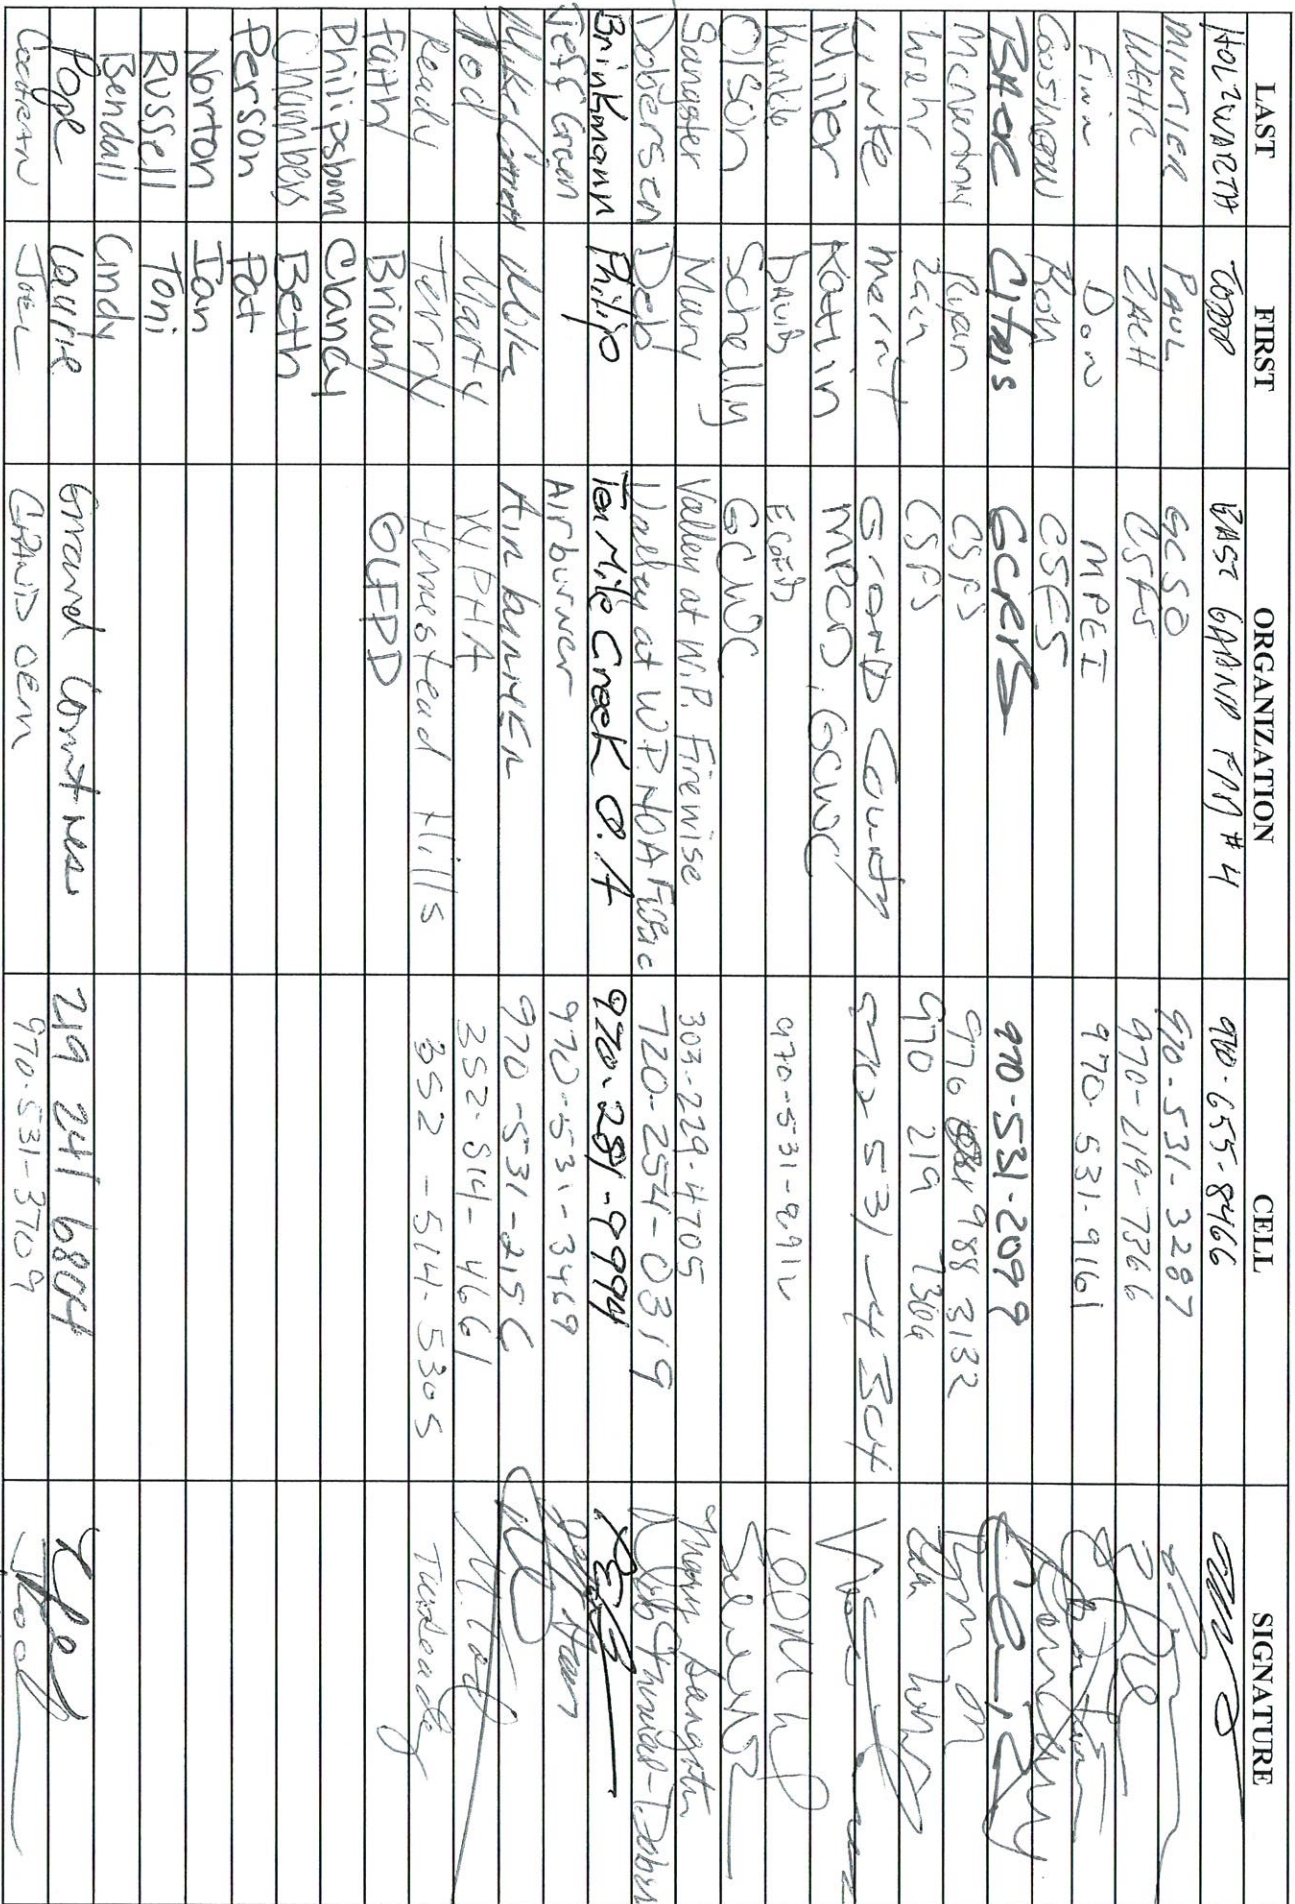 LAST FIRST ORGANIZATION CELL SIGNATURE
HOLZWARTH TODD EAST GRAND FPD #4 970-655-8466
MINTIER PAUL GCSO 970-531-3287
WEHR ZACH CSFS 970-219-7366
Finn Don MPEI 970-531-9161
Cousineau Ron CSFS
BAER Chris GCREIS 970-531-2099
McNertney Ryan CSFS 970 988 3132
Wehr Zach CSFS 970 219 7306
LINKE Merrit GRAND County 970 531-4304
Miller Katlin MPCD, GCWC
Kunkle David ECSD
Olson Schelly GCWC
Sangster Mary Valley at W.P. Firewise 303-229-4705 Mary Sangster
Dobiersen Deb Valley at W.P. HOA 720-254-0319
Brinkmann Philip Ten Mile Creek O.A 970-281-9994
Jeff Green Airburner 970-531-3469
Mike AIR BURNER 970-531-215
Marty 352-514-4661
Ready Terry Homestead Hills 352-514-5305
Faith Brian GLFPD
Philipsborn Clancy
Chambers Beth
Person Pat
Norton Ian
Russell Toni
Bendall Cindy
Page Laurie Grand 219 241 6804
COCHRAN JOEL GRAND OEM 970-531-3709